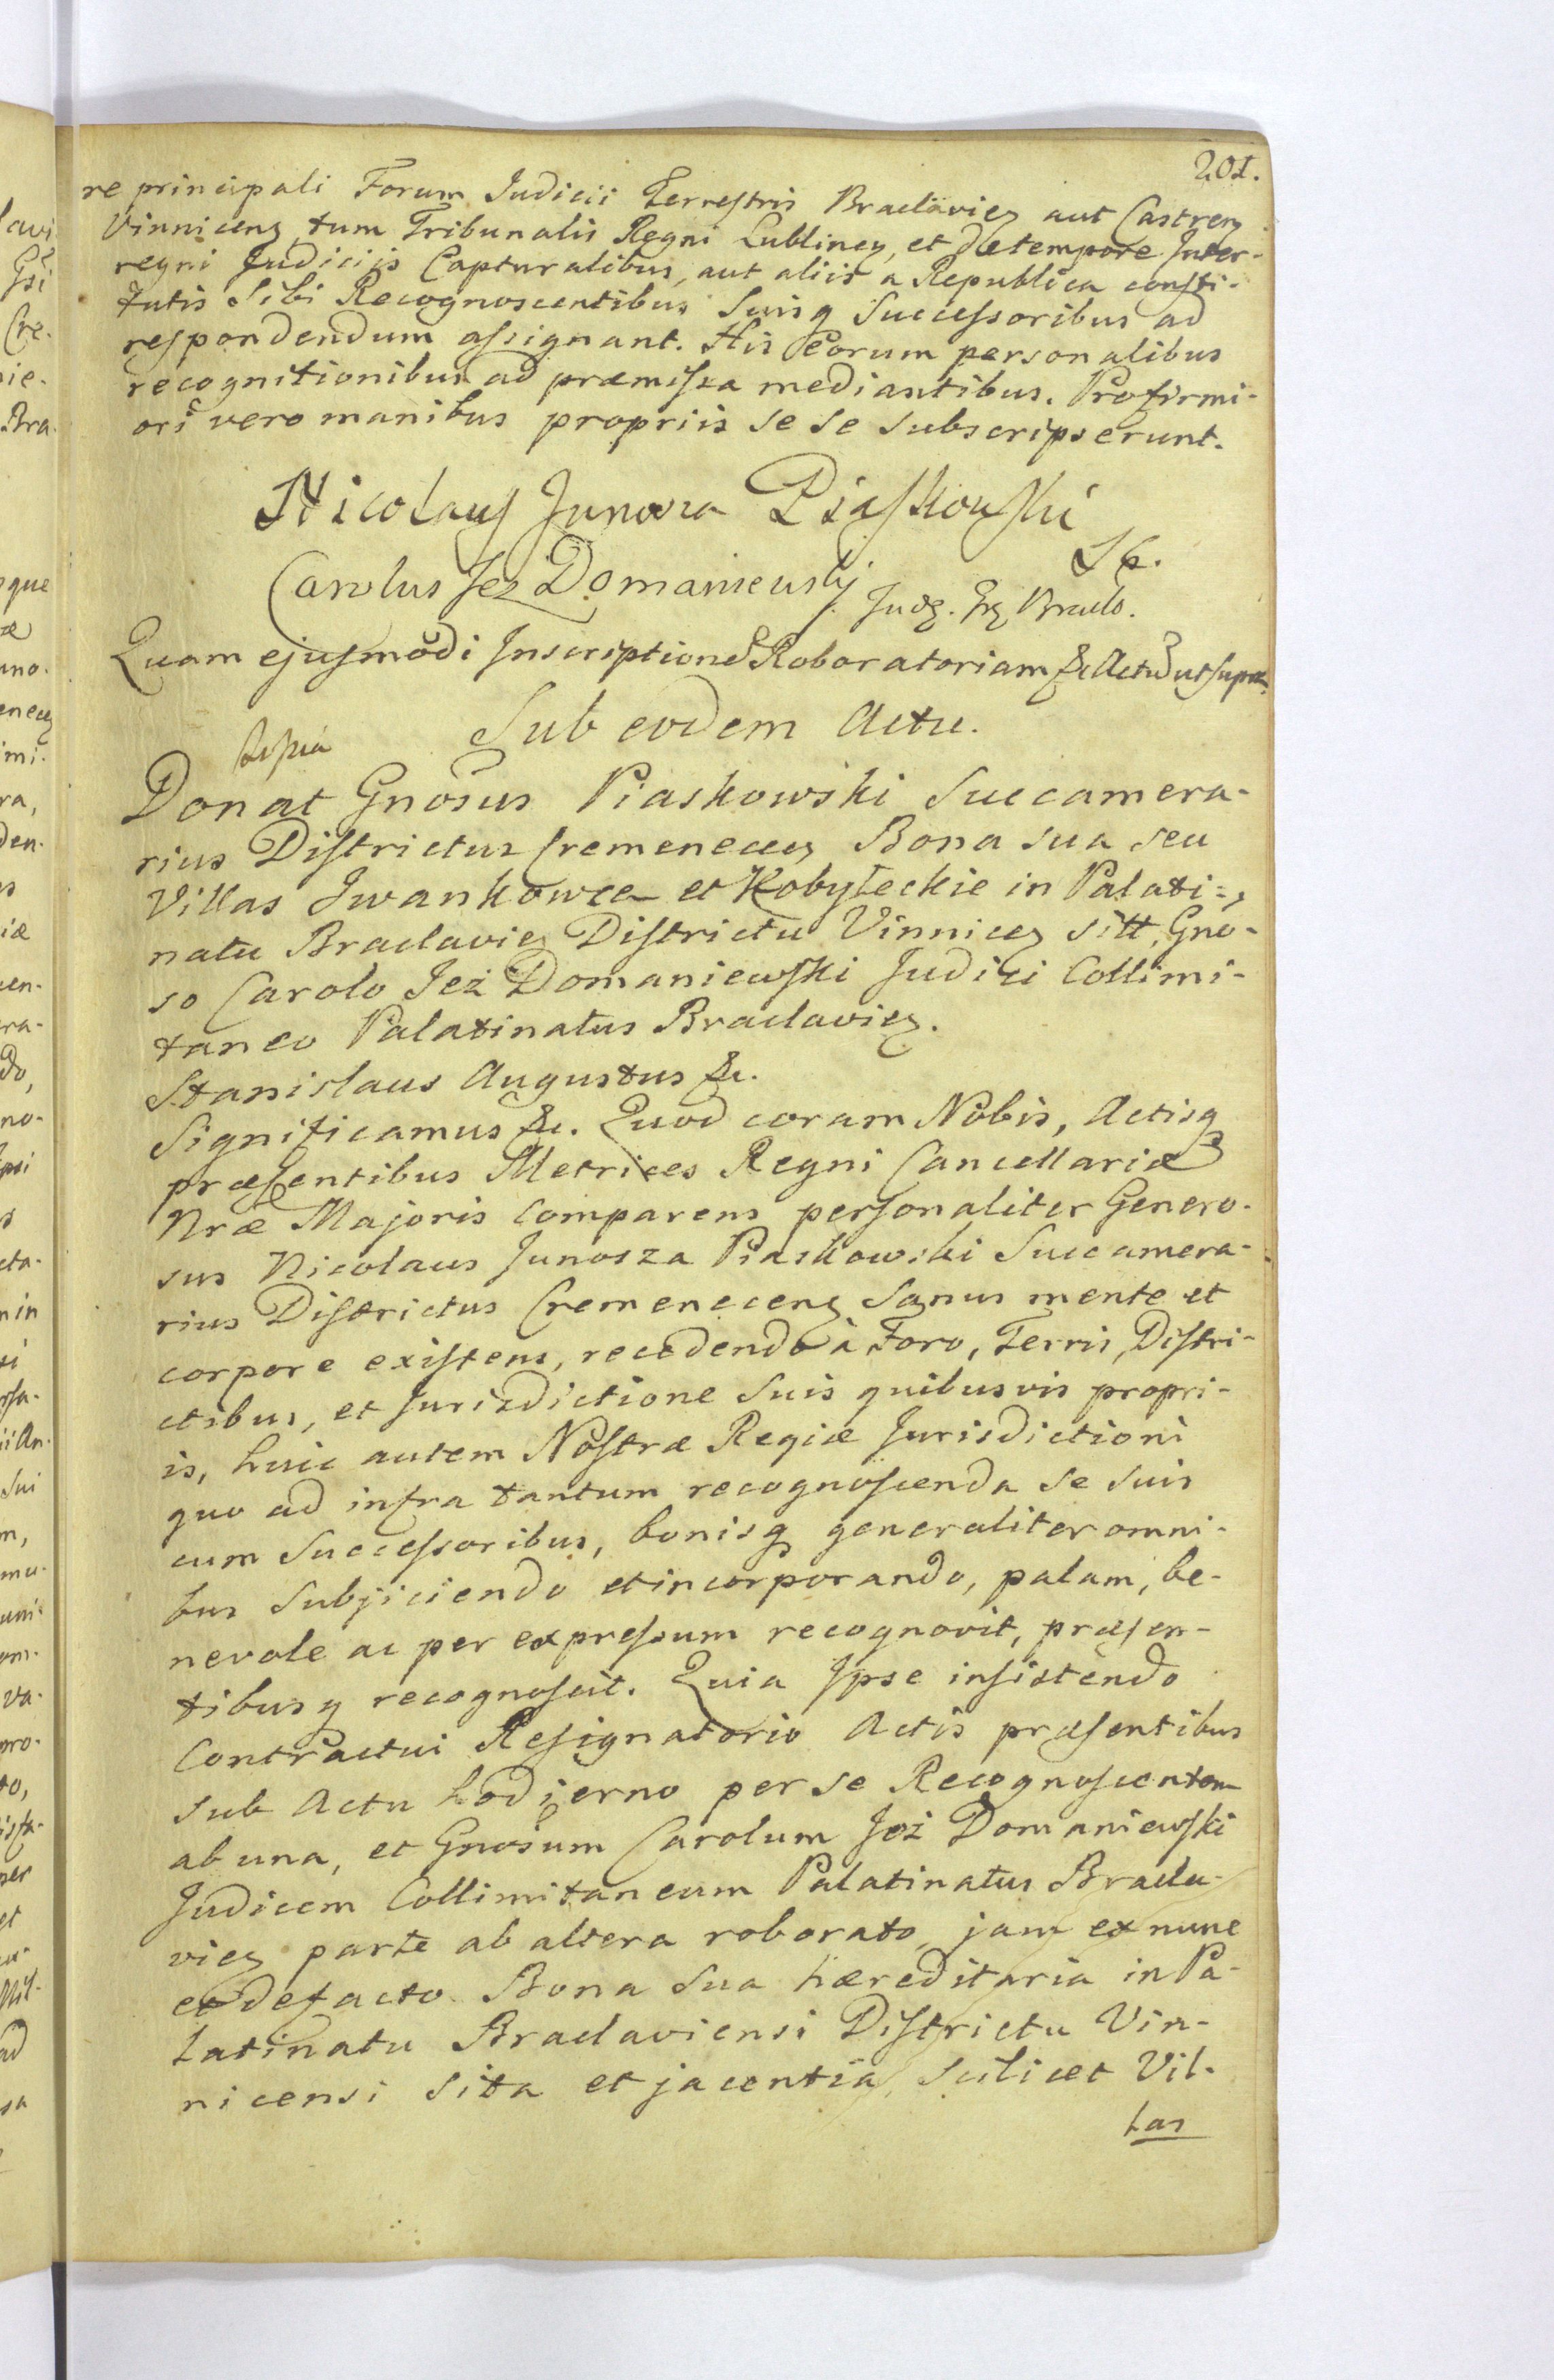 201.
re principali Forum Judicii Terrestris Braclavieȝ aut Castrenȝ
Vinnicenȝ tum Tribunalis Regni Lublineȝ, et de tempore Inter-
regni Judiciis Capturalibus, aut aliis a Republica consti-
tutis Sibi Recognoscentibus Suisq Successoribus ad
respondendum assignant. His Eorum personalibus
recognitionibus ad præmissa mediantibus. Pro firmi-
ori vero manibus propriis se se subscripserunt.
Nicolaus Junosza Piaskowski
Carolus Jez Domaniewski
Judȝ. Braclo.
Quam ejusmodi Inscriptione Roboratoriam &c Actu ut supra
Sub eodem Actu.
Donat Gnosus Piaskowski Succamera-
rius Districtus Cremeneceȝ Bona sua seu
Villas Iwankowce et Kobyleckie in Palati-
natu Braclavieȝ Districtu Vinniceȝ sitt, Gno-
so Carolo Jeż Domaniewski Judici Collimi-
taneo Palatinatus Braclavieȝ.
Stanislaus Augustus &c.
Significamus &c. Quod coram Nobis, Actisq
præsentibus Metrices Regni Cancellariæ
Nræ Majoris Comparens personaliter Genero-
sus Nicolaus Junosza Piaskowski Succamera-
rius Districtus Cremenecenȝ Sanus mente et
corpore existens, recedendo à Foro, Terris, Distri-
ctibus, et Jurisdictione Suis quibusvis propri-
is, huic autem Nostræ Regiæ Jurisdictioni
quo ad infra tantum recognoscenda se suis
cum Successoribus, bonisq generaliter omni-
bus Subjiciendo et incorporando, palam, be-
nevole ac per expressum recognovit, præsen-
tibusq recognoscit. Quia Ipse insistendo
Contractui Resignatorio Actis præsentibus
sub Actu hodierno per se Recognoscentem
ab una, et Gnosum Carolum Jeż Domaniewski
Judicem Collimitaneum Palatinatus Bracla-
vieȝ parte ab altera roborato, jam ex nunc
et de facto Bona Sua hæreditaria in Pa-
latinatu Braclaviensi Districtu Vin-
nicensi sita et jacentia, scilicet Vil-
las